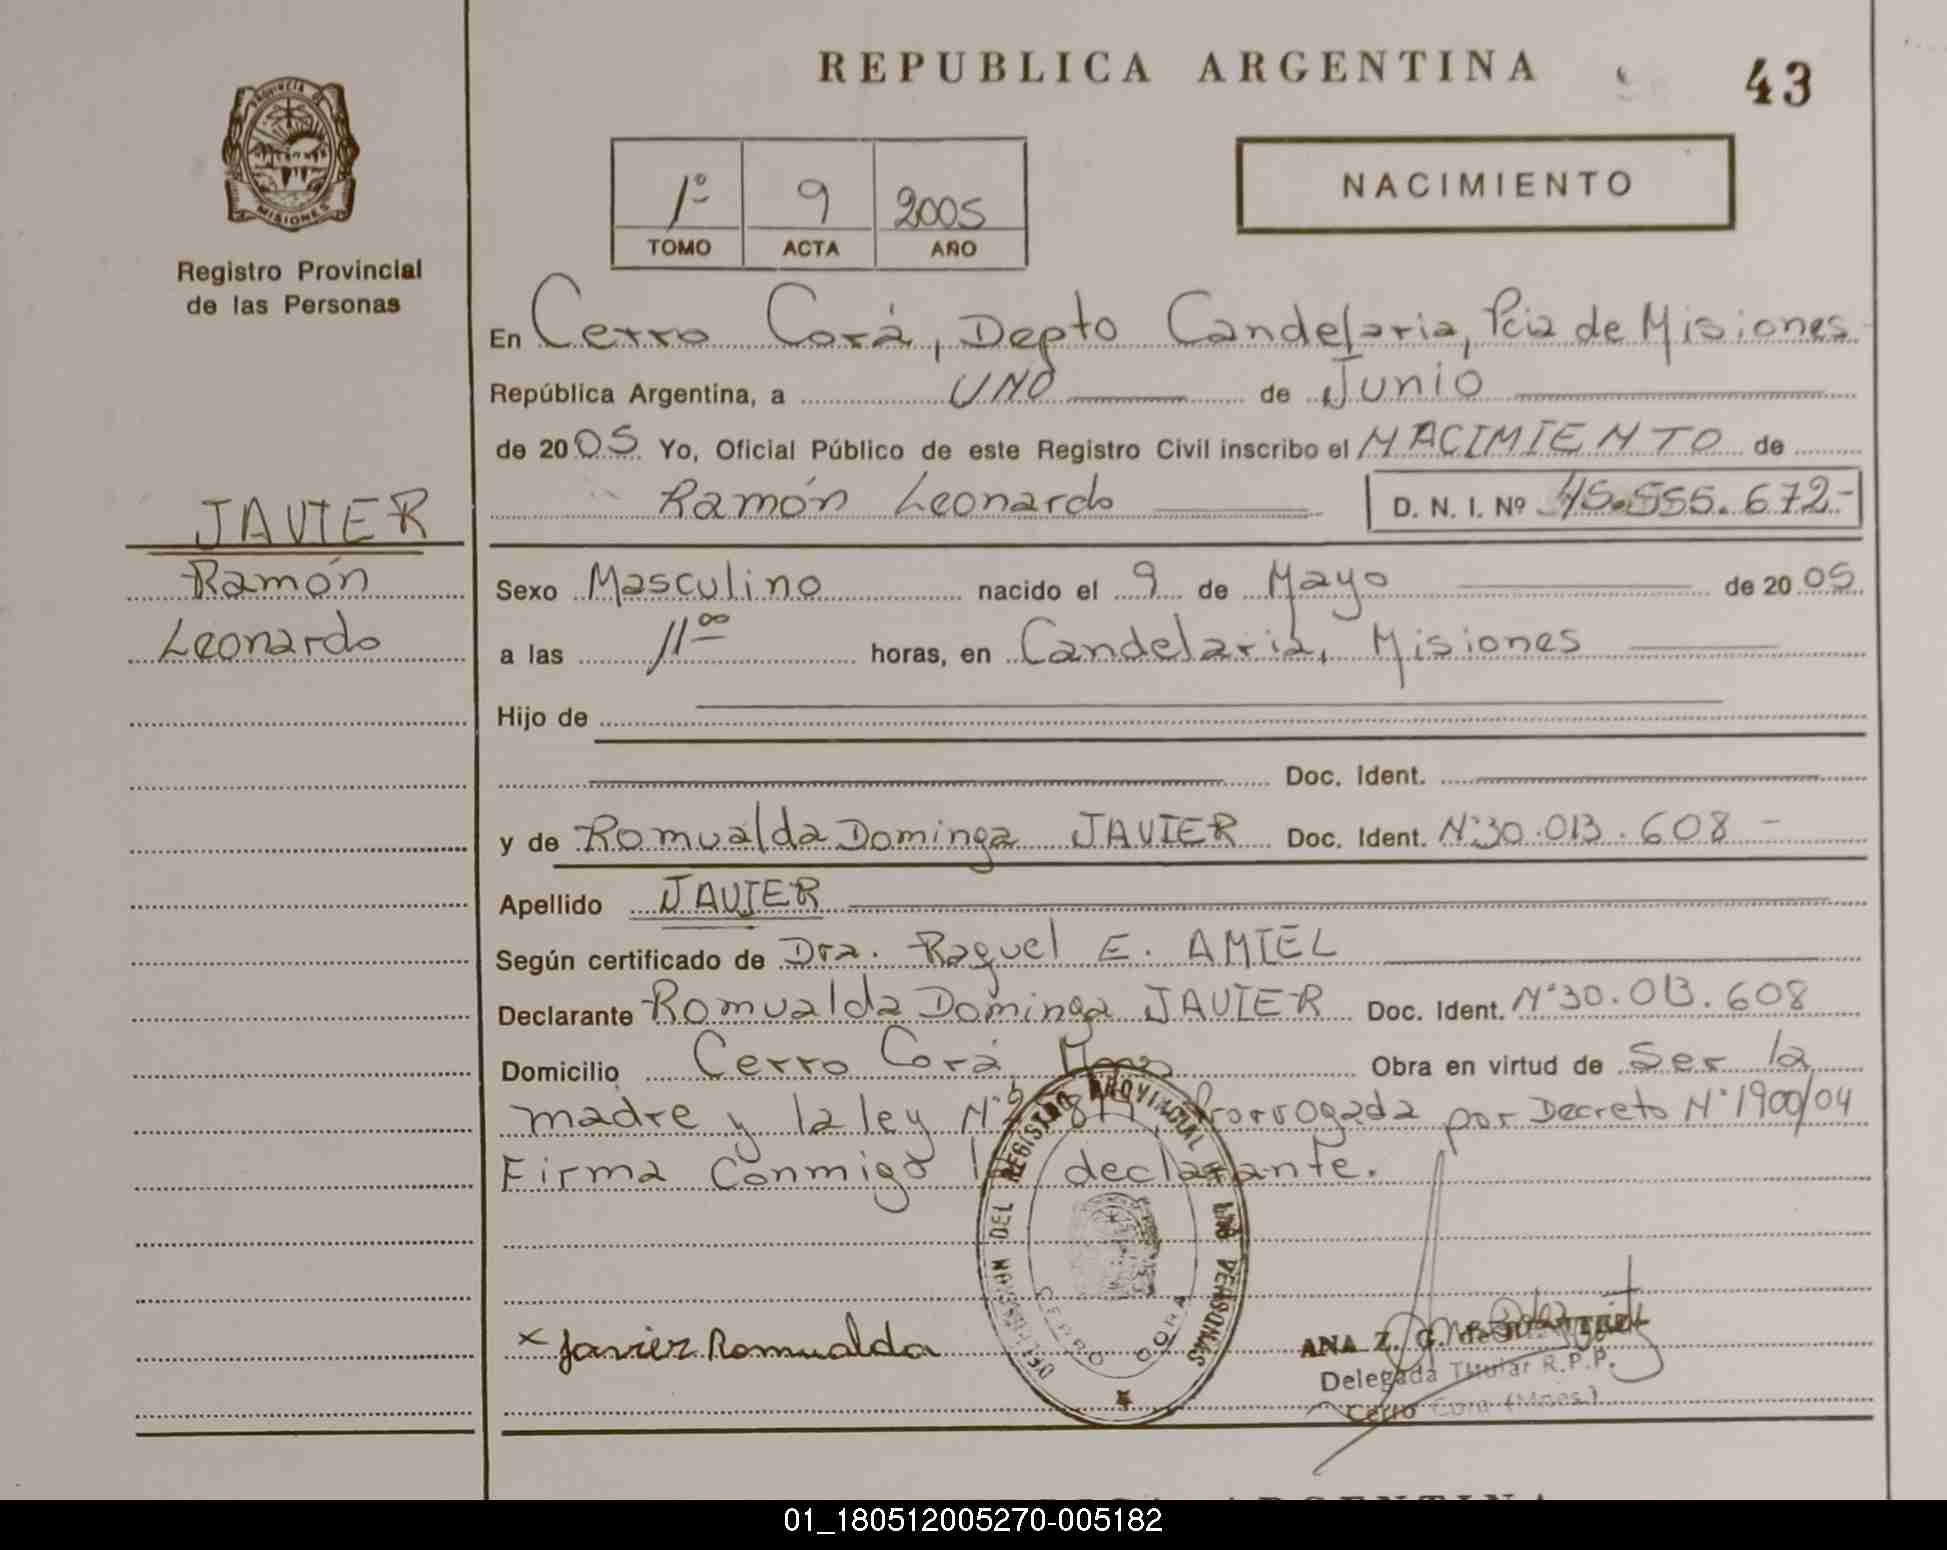 REPUBLICA ARGENTINA
43
PROVINCIA DE
MISIONES
Registro Provincial
de las Personas
1º 9 2005
TOMO ACTA AÑO
NACIMIENTO
En Cerro Corá, Depto Candelaria, Pcia de Misiones
República Argentina, a UNO de Junio
de 2005 Yo, Oficial Público de este Registro Civil inscribo el NACIMIENTO de
Ramón Leonardo D. N. I. Nº 45.555.672-
JAVIER
Ramón
Leonardo
Sexo Masculino nacido el 9 de Mayo de 2005
a las 11 00 horas, en Candelaria, Misiones
Hijo de
Doc. Ident.
y de Romualda Dominga JAVIER Doc. Ident. Nº30.013.608 -
Apellido JAVIER
Según certificado de Dra. Raquel E. AMIEL
Declarante Romualda Dominga JAVIER Doc. Ident. Nº30.013.608
Domicilio Cerro Corá, Mnes Obra en virtud de Ser la
madre y la ley Nº prorrogada por Decreto Nº1900/04
Firma Conmigo declarante.
DEL REGISTRO PROVINCIAL DE LAS PERSONAS
CERRO CORA
x Javier Romualda
ANA Z. G. de
Delegada Titular R.P.P.
Cerro Corá (Mnes.)
01_180512005270-005182